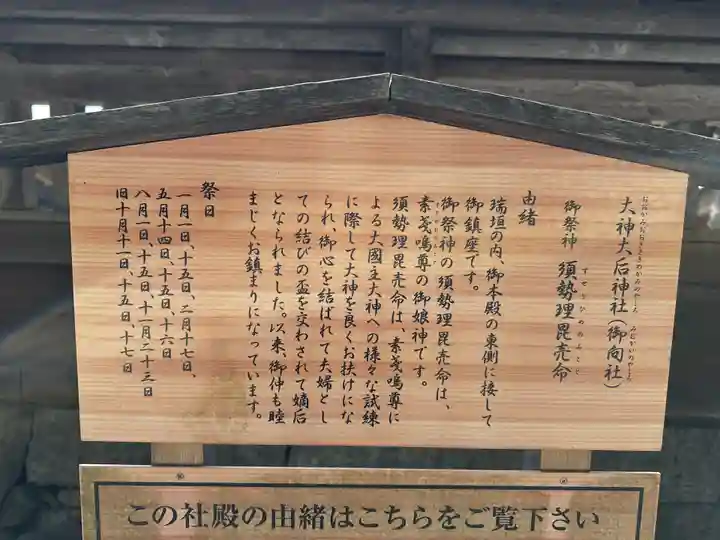 大神大后神社（御向社）
御祭神　須勢理毘売命
由緒
瑞垣の内、御本殿の東側に接して
御鎮座です。
御祭神の須勢理毘売命は、
素戔嗚尊の御娘神です。
須勢理毘売命は、素戔嗚尊に
よる大國主大神への様々な試練
に際して大神を良くお扶けにな
られ、御心を結ばれて夫婦とし
ての結びの盃を交わされて嫡后
となられました。以来、御仲も睦
まじくお鎮まりになっています。
祭日
一月一日、十五日、二月十七日、
五月十四日、十五日、十六日
八月一日、十五日、十一月二十三日
旧十月十一日、十五日、十七日
この社殿の由緒はこちらをご覧下さい